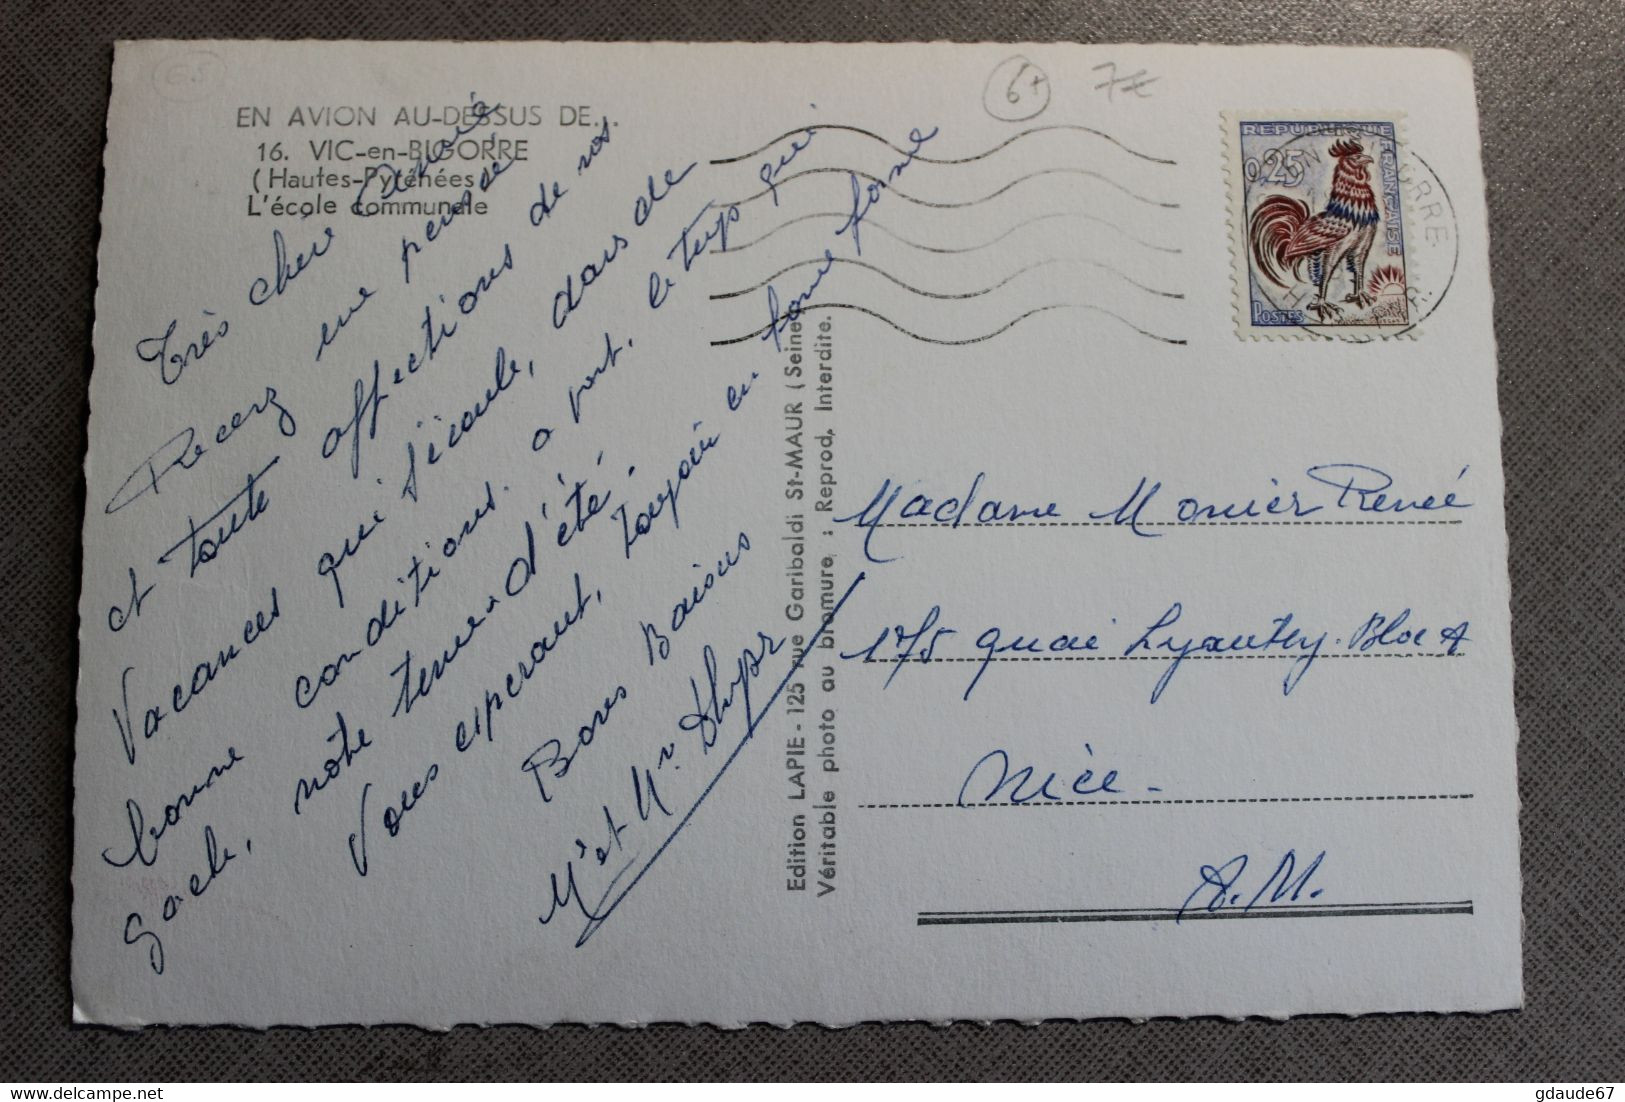 E5
6+ 7€
EN AVION AU-DESSUS DE...
16. VIC-en-BIGORRE
(Hautes-Pyrénées)
L'école communale
Très chère
Recevez une pensée
et toute affections de nos
Vacances qui s'écoule, dans de
bonne conditions. a part. le temps qui
gache, nôtre tenue d'été.
Vous esperant, toujour en bonne forme
Bons Baisers
Mme et Mr.
Edition LAPIE - 125 rue Garibaldi St-MAUR (Seine)
Véritable photo au bromure : Reprod. Interdite.
REPUBLIQUE FRANÇAISE
0,25
POSTES
Madame Monier Renée
175 quai Lyautey. Bloc A
Nice.
A.M.
gdaude67